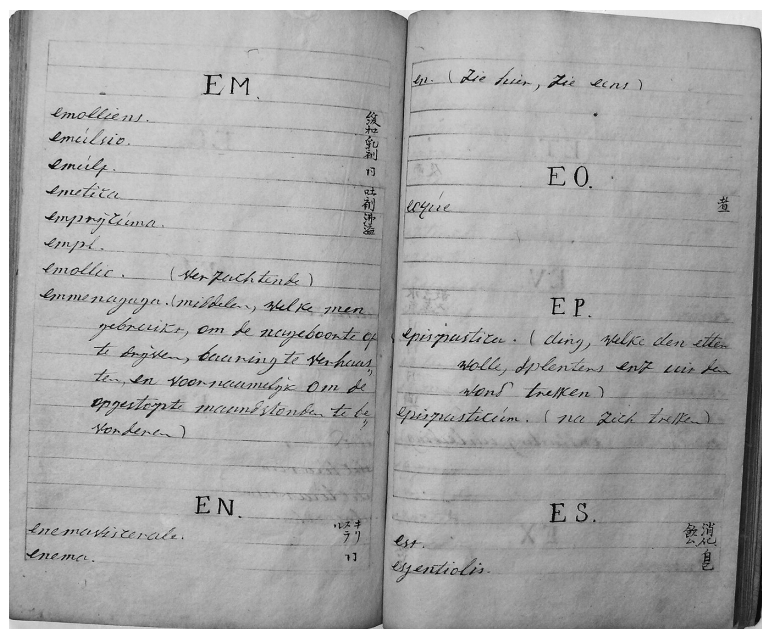 EM.
emolliens. 緩和
emúlsio. 乳剤
emúlf. 〃
emetica 吐剤
empÿtúma. 沸溢
empl.
emollic. (verzachtende)
emmenagaga. (middelen, welke men
gebruikt, om de nageboorte af
te drijven, baaring te verhaas„
ten, en voornaamelijk om de
opgestopte maandstonden te be„
vorderen)
EN.
enema
enema. 〃
en. (Zie hier, Zie eens)
EO.
EP.
epispastica. (ding, welke den etter
wolle, splenters enz uit den
wond trekken)
epispasticúm. (na zich trekken)
ES.
est. 消化
essentiolis. 自己